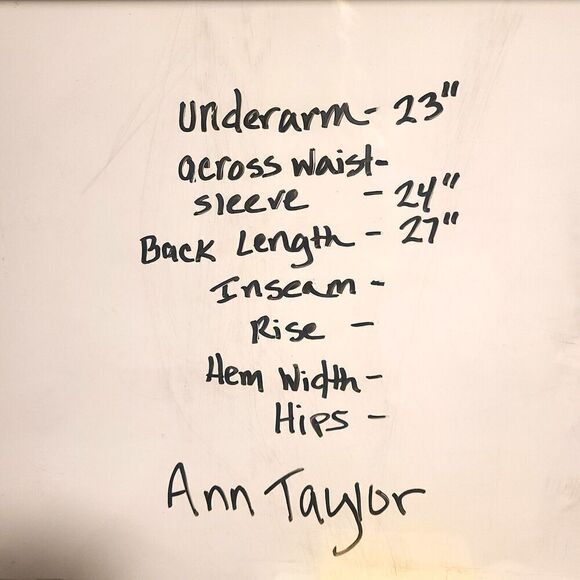 underarm - 23"
across waist -
sleeve - 24"
Back Length - 27"
Inseam -
Rise -
Hem Width -
Hips -
Ann Taylor